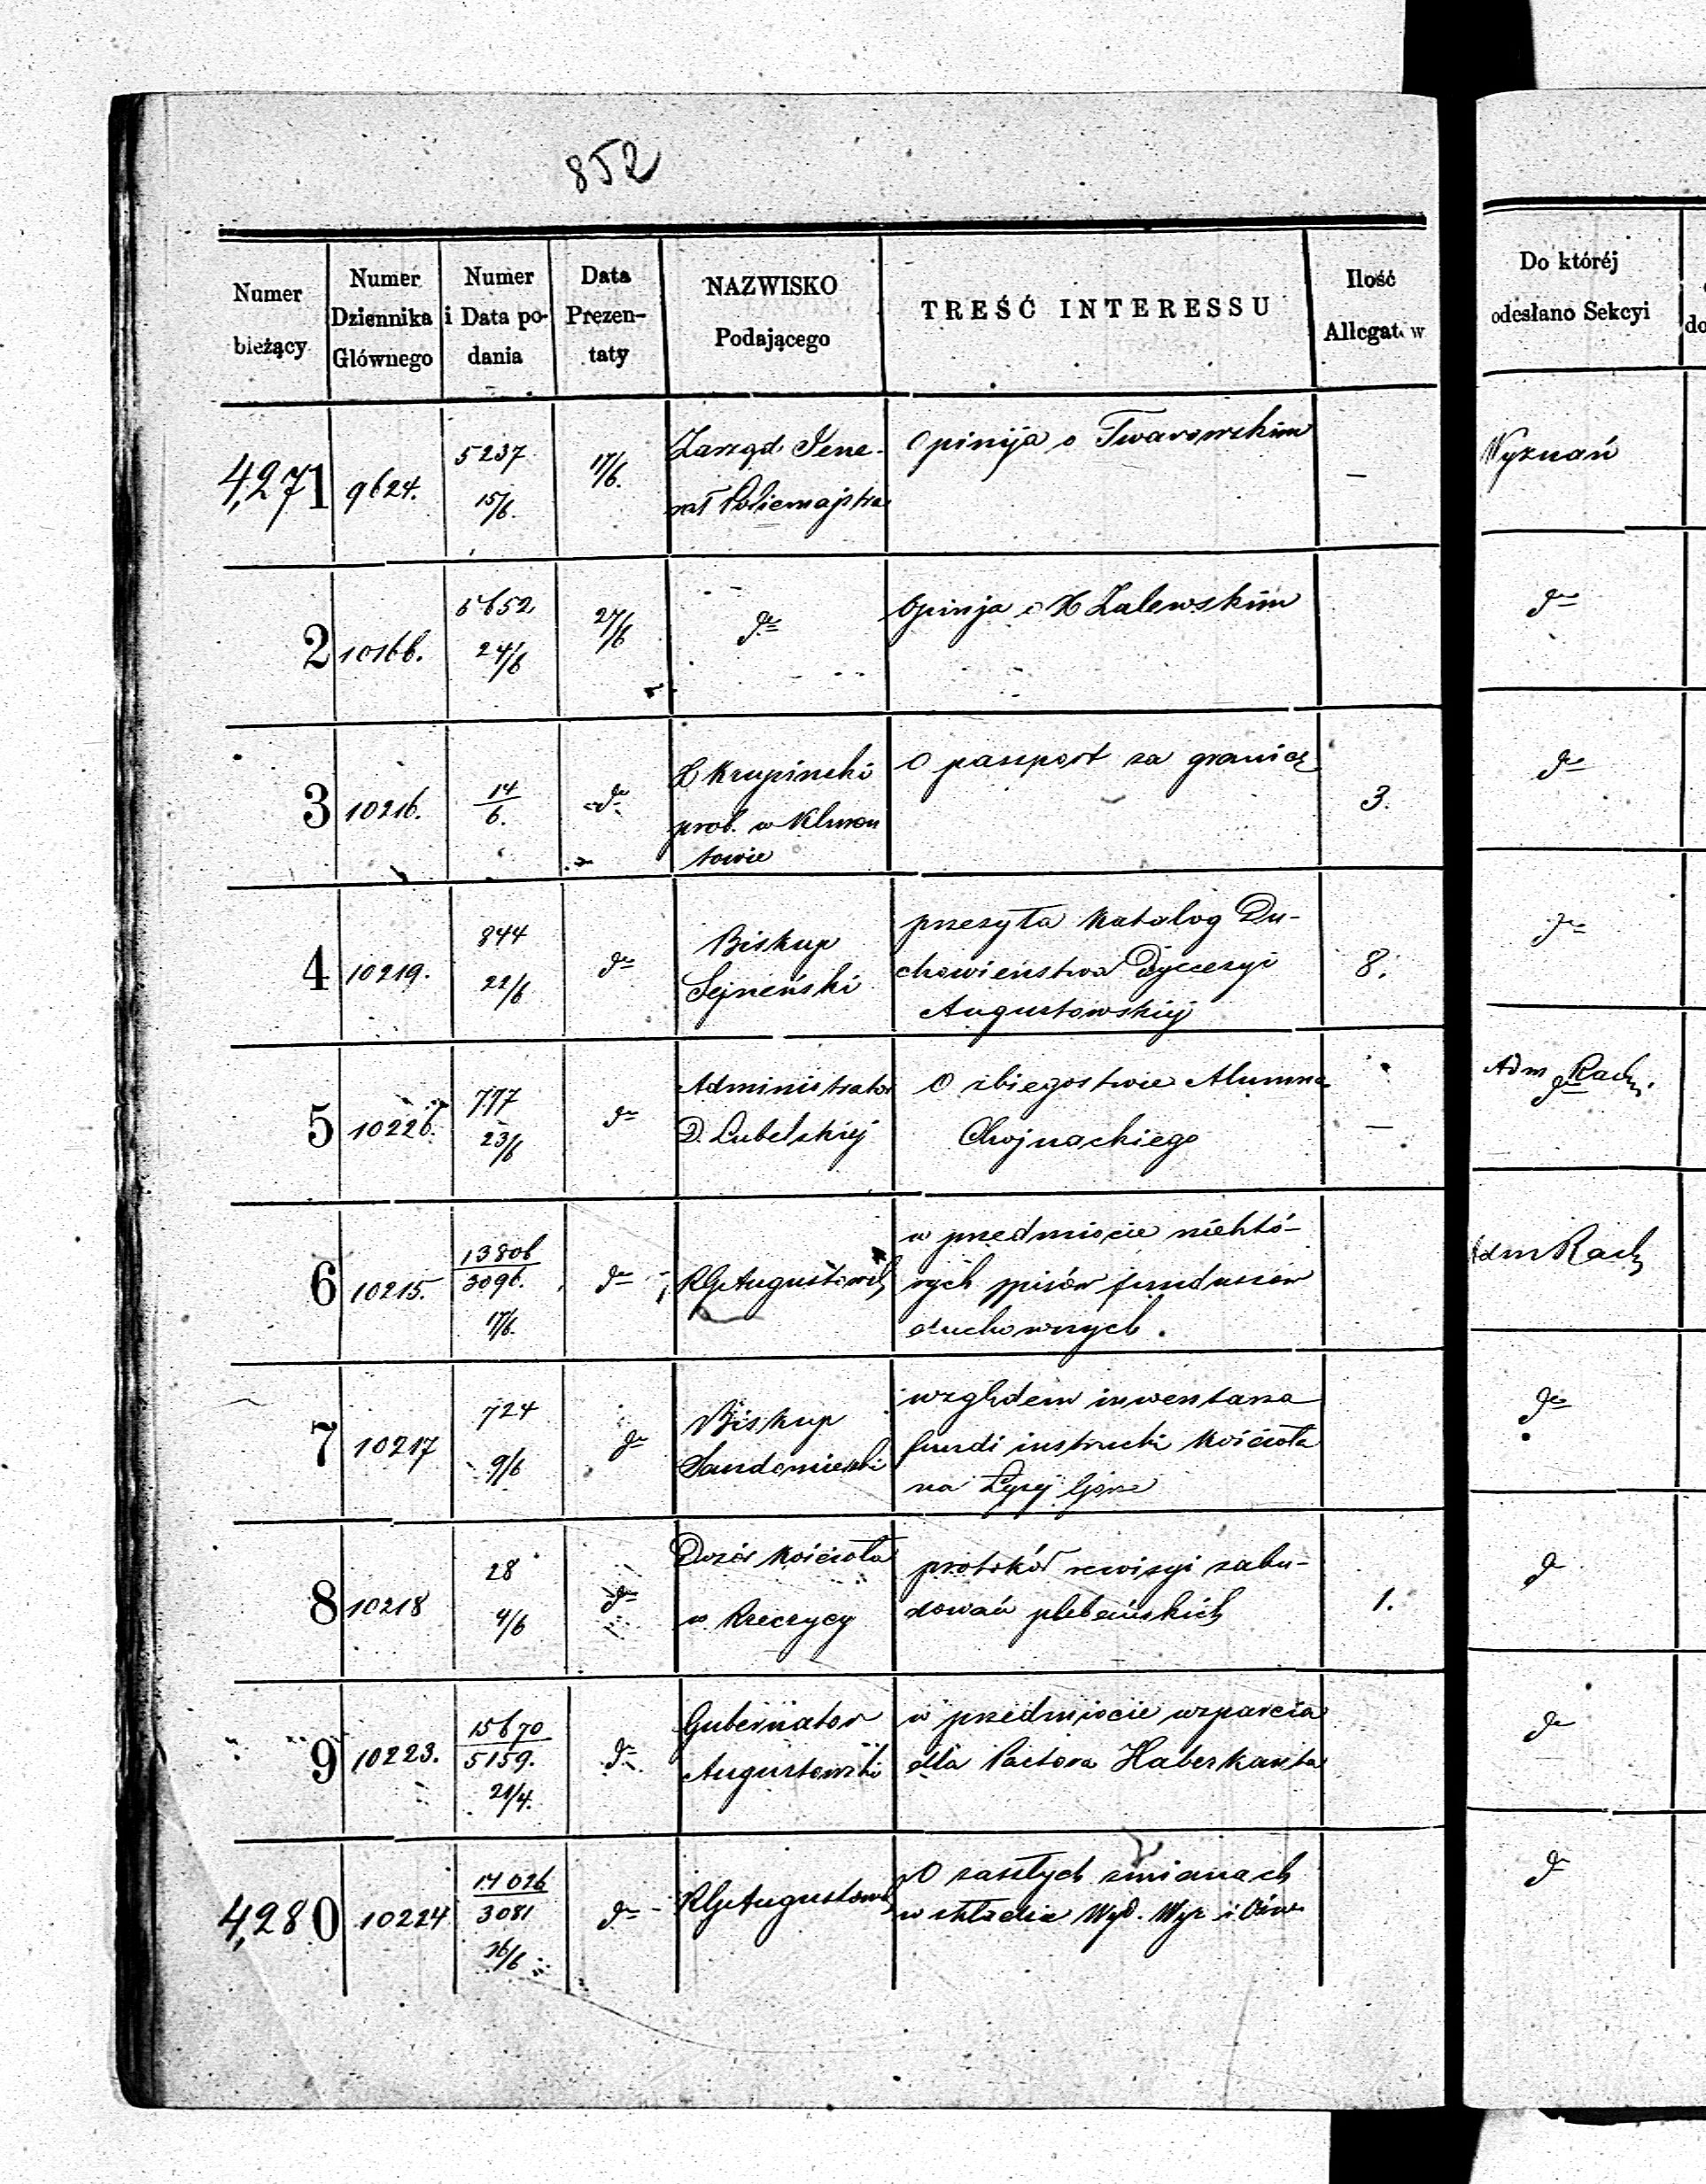 852
Numer bieżący
Numer Dziennika Głównego
Numer i Data podania
Data Prezentaty
NAZWISKO Podającego
TREŚĆ INTERESSU
Ilość Allegatów
Do któréj odesłano Sekcyi
4,271 9624. 5237 15/6. 17/6. Zarząd Jene- Opinija o Twarowskim — Wyznań
rał Policmajstra
2 10166. 5652 24/6 27/6 do Opinja o X Zalewskim do
3 10216. 14/6. do X Krupinski O paszport za granicę 3. do
prob. w Klimon
towie
4 10219. 844 22/6 do Biskup przesyła Katalog Du- 8. do
Sejneński chowieństwa Dyecezyi
Augustowskiej
5 10226. 777 23/6 do Administrator O zbiegostwie Alumna — Adm Rach.
D. Lubelskiej Chojnackiego do
6 10215. 13806 3096. 17/6. do RGAugustowsk w przedmiocie niektó- Adm Rach
rych spisów funduszów
duchownych.
7 10217 724 9/6 do Biskup względem inwentarza do
Sandomierski fundi instructi Kościoła
na Łysej Górze
8 10218 28 4/6 do Dozór Kościoła protokół rewizyi zabu- 1. do
w Rzeczycy dowań plebańskich
9 10223. 15670 5159. 21/4. do Gubernator w przedmiocie wsparcia do
Augustowski dla Pastora Haberkanta
4,280 10224 14026 3081 16/6 do RGAugustowsk O zaszłych zmianach do
w składzie Wyd. Wyz i Ośw.